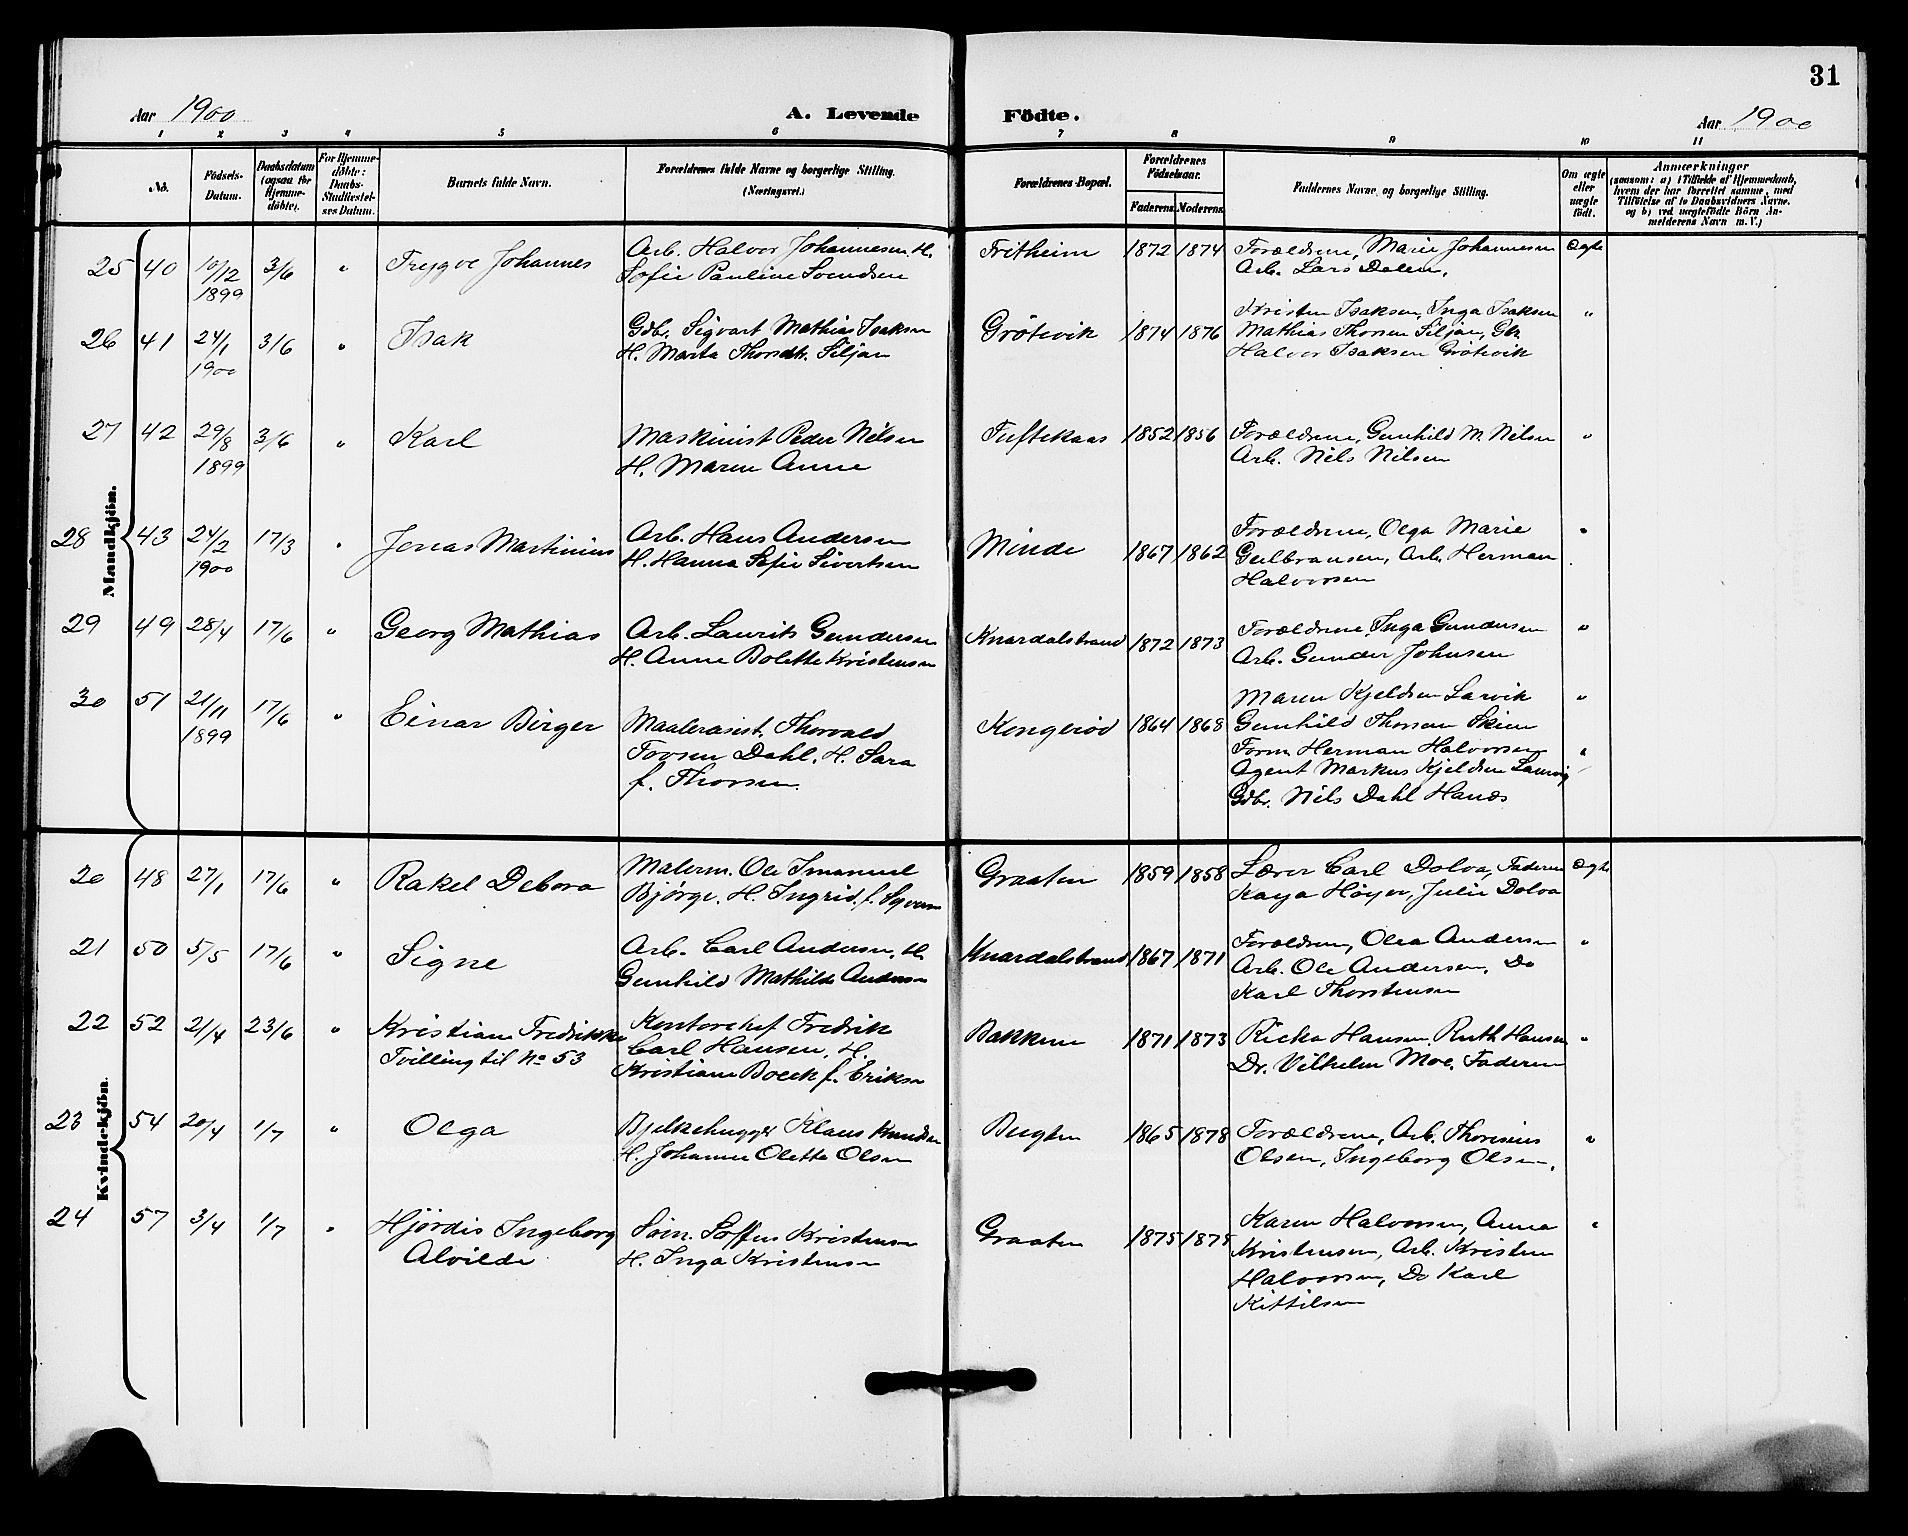 31
Aar 1900 A. Levende Födte. Aar 1900
1 2 3 4 5 6 7 8 9 10 11
No. Födsels-Datum. Daabsdatum (ogsaa for Hjemme-döbte). For Hjemme-döbte: Daabs-Stadfæstel-ses Datum. Barnets fulde Navn. Forældrenes fulde Navne og borgerlige Stilling. (Næringsvei.) Forældrenes Bopæl. Forældrenes Födselsaar. Faderens Moderens Faddernes Navne og borgerlige Stilling. Om ægte eller uægte födt. Anmærkninger (saasom: a) i Tilfælde af Hjemmedaab, hvem der har forrettet samme, med Tilföielse af to Daabsvidners Navne, og b) ved uægtefödte Börn An-melderens Navn m. V.)
Mandkjön.
25 40 10/12 1899 3/6 " Trygve Johannes
Arb. Halvor Johannesen H.
Sofie Pauline Svendsen
Fritheim 1872 1874
Forældrene, Marie Johannesen
Arb. Lars Dalen.
Ægte
26 41 24/1 1900 3/6 " Isak
Gdbr. Sigvart Mathias Isaksen
H. Marta Thorsdtr. Siljan
Grötevik 1874 1876
Kristen Isaksen, Inga Isaksen
Mathias Thorsen Siljan, Gk.
Halvor Isaksen Grötevik
"
27 42 29/8 1899 3/6 " Karl
Maskinist Peder Nilsen
H. Maren Anne
Tuftekaas 1852 1856
Forældrene, Gunhild M. Nilsen
Arb. Nils Nilsen
"
28 43 24/2 1900 17/3 " Jonas Martinius
Arb. Hans Andersen
H. Hanna Sofie Sivertsen
Minde 1867 1862
Forældrene, Olga Marie
Gulbransen, Arb. Herman
Halvorsen
"
29 49 28/4 17/6 " Georg Mathias
Arb. Laurits Gundersen
H. Anne Bolette Kristensen
Knardalstrand 1872 1873
Forældrene, Inga Gundersen
Arb. Gunder Johnsen
"
30 51 21/11 1899 17/6 " Einar Birger
Maalerasist. Thorvald
Tovsen Dahl, H. Sara
f. Thorsen.
Kongerød 1864 1868
Maren Kjeldsen Larvik
Gunhild Thorsen Skien
Form. Herman Halvorsen
Agent Markus Kjeldsen Laurvig
Gdbr. Nils Dahl Hanøs
"
Kvindekjön.
20 48 27/1 17/6 " Rakel Debora
Malerm. Ole Imanuel
Bjørge, H. Ingrid, f. Syvers
Graaten 1859 1858
Lærer Carl Dolva, Faderen
Kaya Høyer, Julie Dolva
Ægte
21 50 5/5 17/6 " Signe
Arb. Carl Andersen, H.
Gunhild Mathilde Andersen
Knardalstrand 1867 1871
Forældrene, Olea Andersen
Arb. Ole Andersen, Do
Karl Thorstensen
"
22 52 2/4 23/6 " Kristiane Fredrikke
Tvilling til No 53
Kontorchef Fredrik
Carl Hansen, H.
Kristiane Boeck f. Eriksen
Bakkene 1871 1873
Ricka Hansen, Ruth Hansen
Dr. Vilhelm Moe, Faderen
"
23 54 20/4 1/7 " Olga
Bjelkehugger Klaus Knudsen
H. Johanne Olette Olsen
Bugten 1865 1878
Forældrene, Arb. Thorinius
Olsen, Ingeborg Olsen.
"
24 57 3/4 1/7 " Hjördis Ingeborg
Alvilde
Søm. Soffus Kristensen
H. Inga Kristensen
Graaten 1875 1875
Karen Halvorsen, Anna
Kristensen, Arb. Kristen
Halvorsen, Do Karl
Kittilsen
"